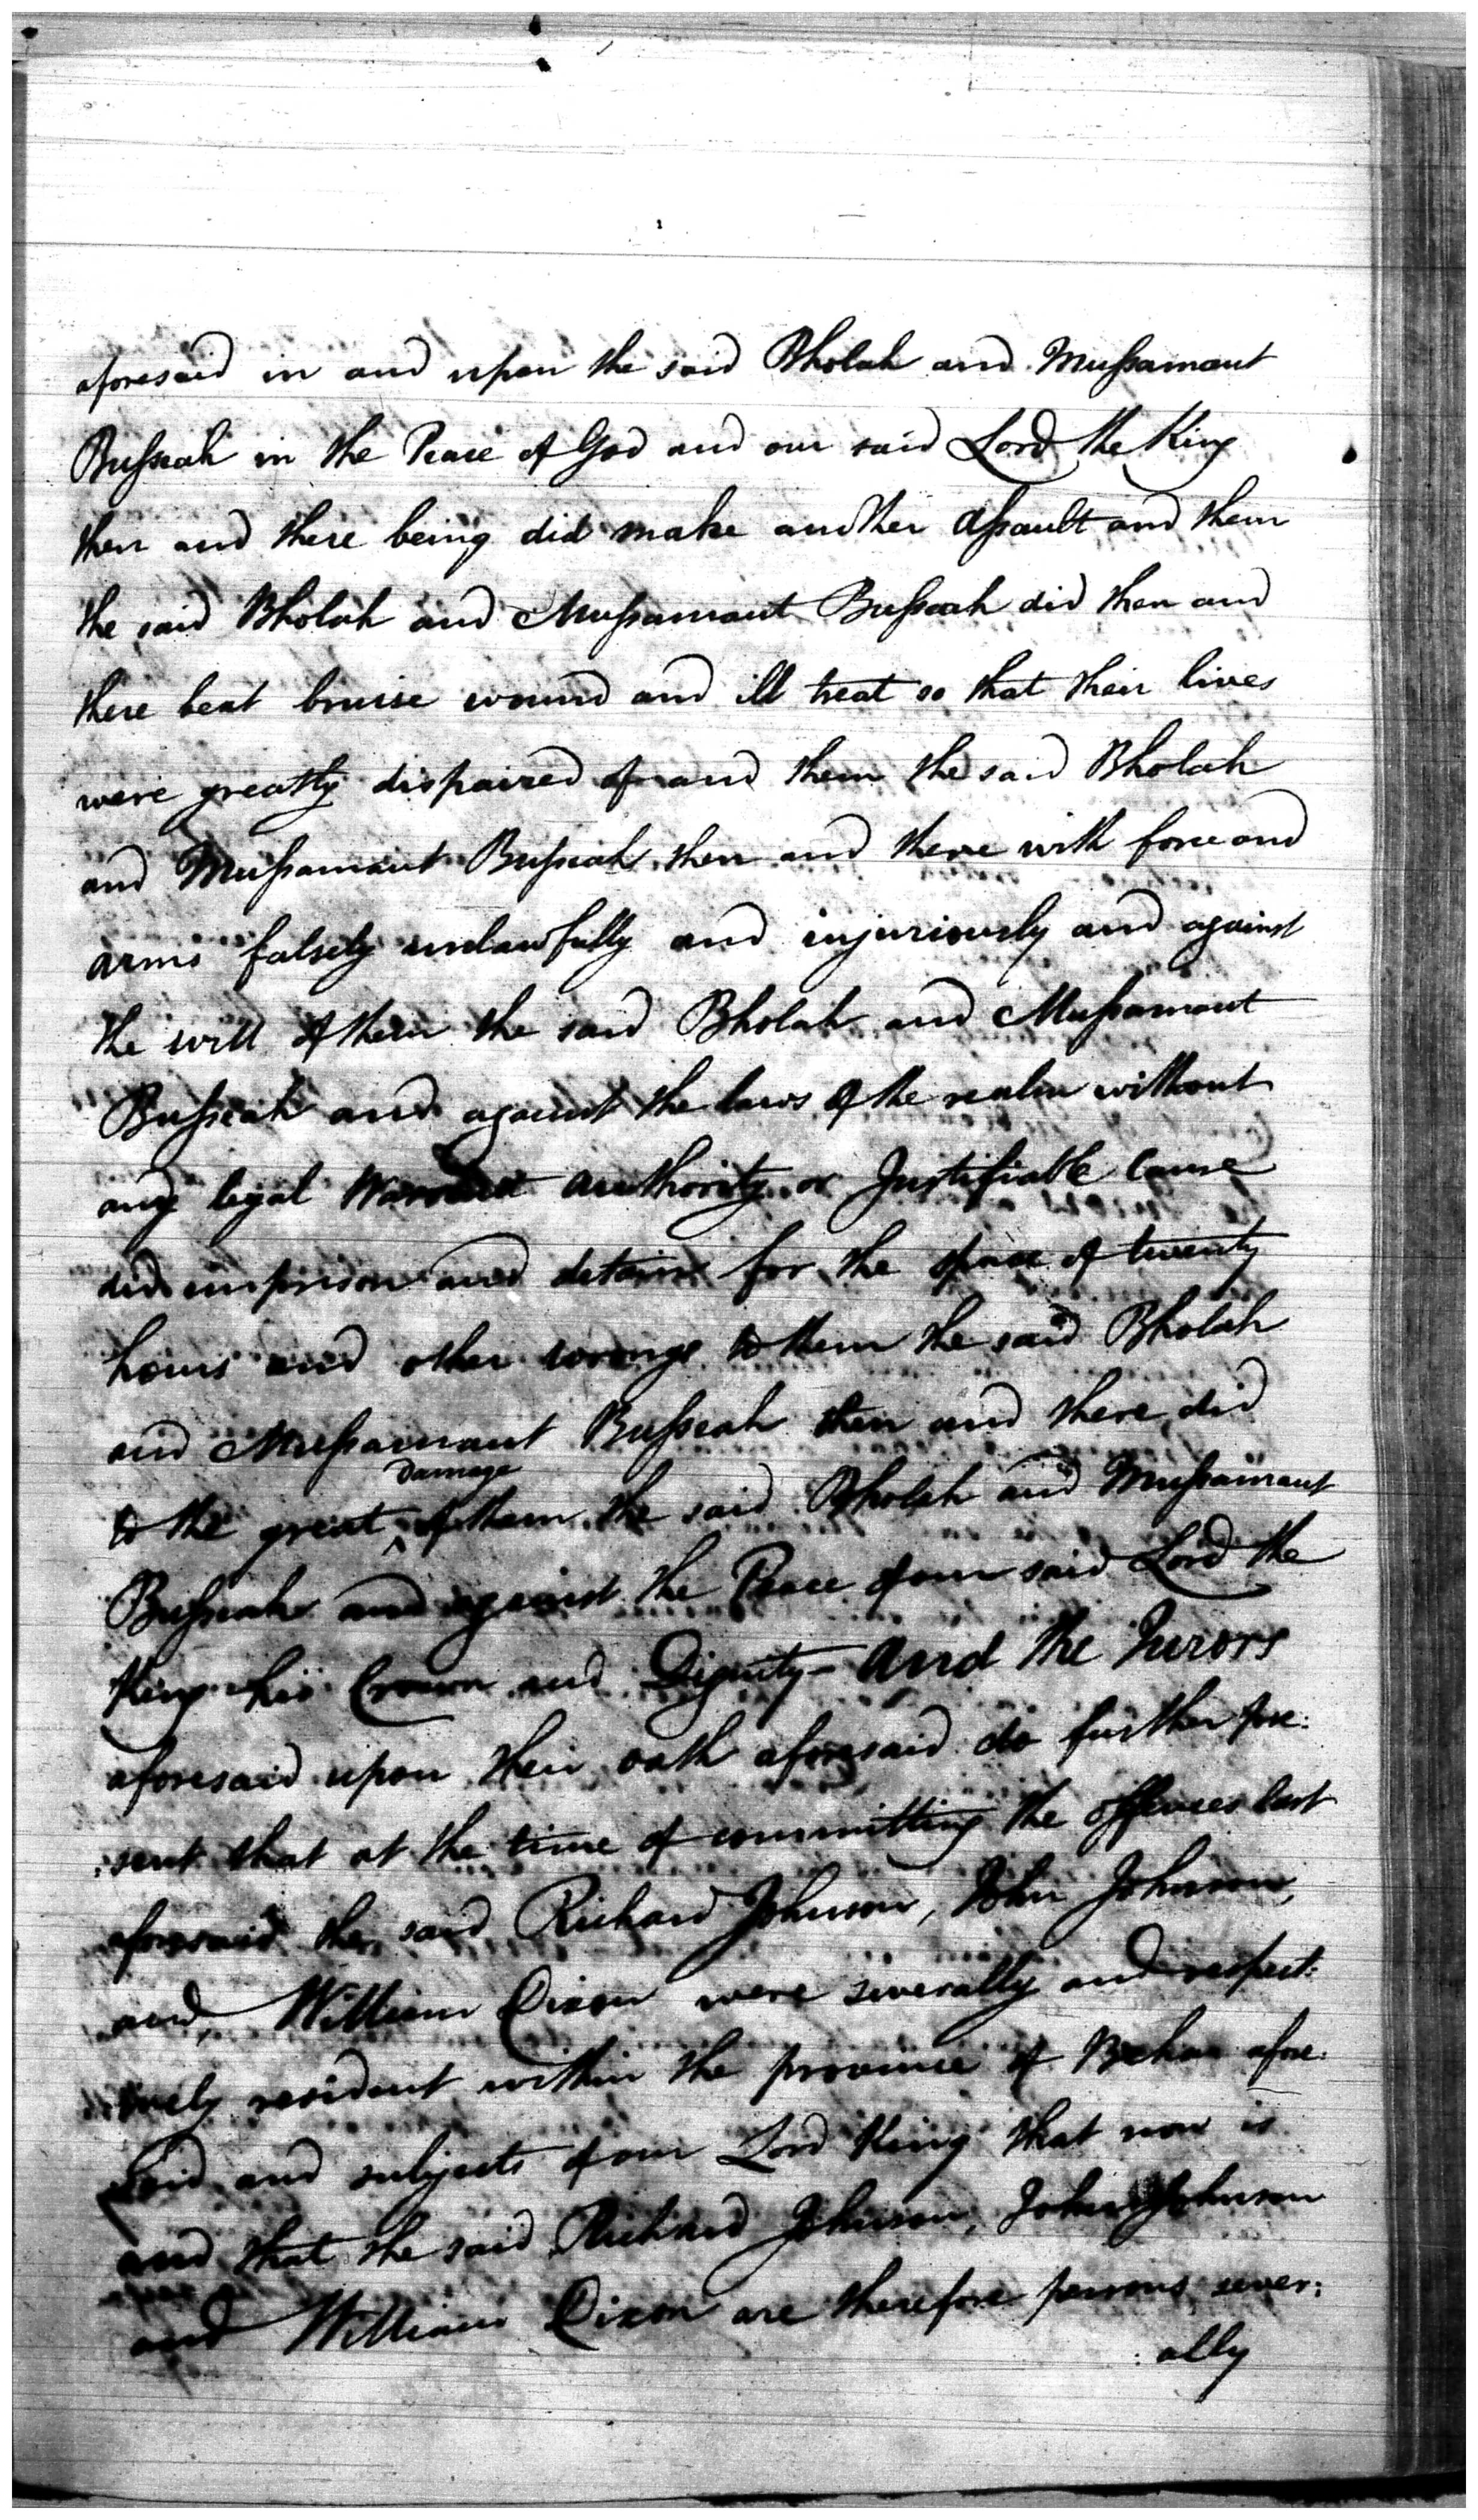 aforesaid in and upon the said Bholah and Mussamaut
Busseah in the Peace of God and our said Lord the King
then and there being did make another Assault and them
the said Bholah and Mussamaut Busseah did then and
there beat bruise wound and ill treat so that their lives
were greatly dispaired of and them the said Bholah
and Mussamaut Busseah then and there with force and
arms falsely unlawfully and injuriously and against
the will of them the said Bholah and Mussamaut
Busseah and against the laws of the realm without
any legal Warrant authority or Justifiable Cause
did imprison and detain for the space of twenty
hours and other wrongs to them the said Bholah
and Mussamaut Busseah then and there did
to the great damage of them the said Bholah and Mussamaut
Busseah and against the Peace of our said Lord the
King his Crown and Dignity - And the Jurors
aforesaid upon their oath aforesaid do further pre:
:sent that at the time of committing the offences last
aforesaid the said Richard Johnson, John Johnson,
and William Dixon were severally and respect:
:ively resident within the province of Behar afore:
said and subjects of our Lord King that now is
and that the said Richard Johnson, John Johnson
and William Dixon are therefore persons sever:
:ally